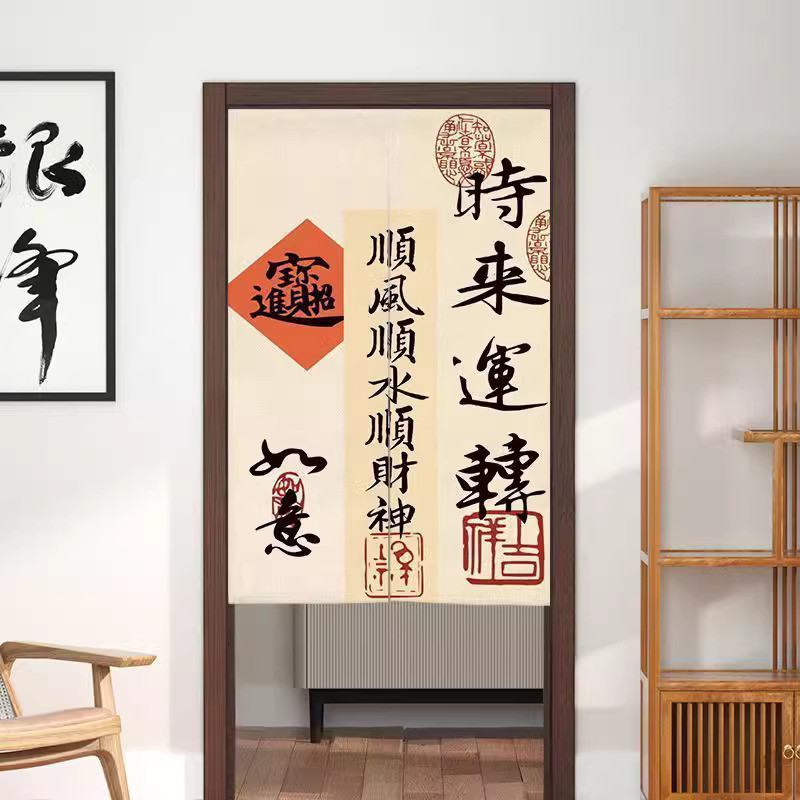 時来運轉
吉祥
順風順水順財神
招財進寶
如意